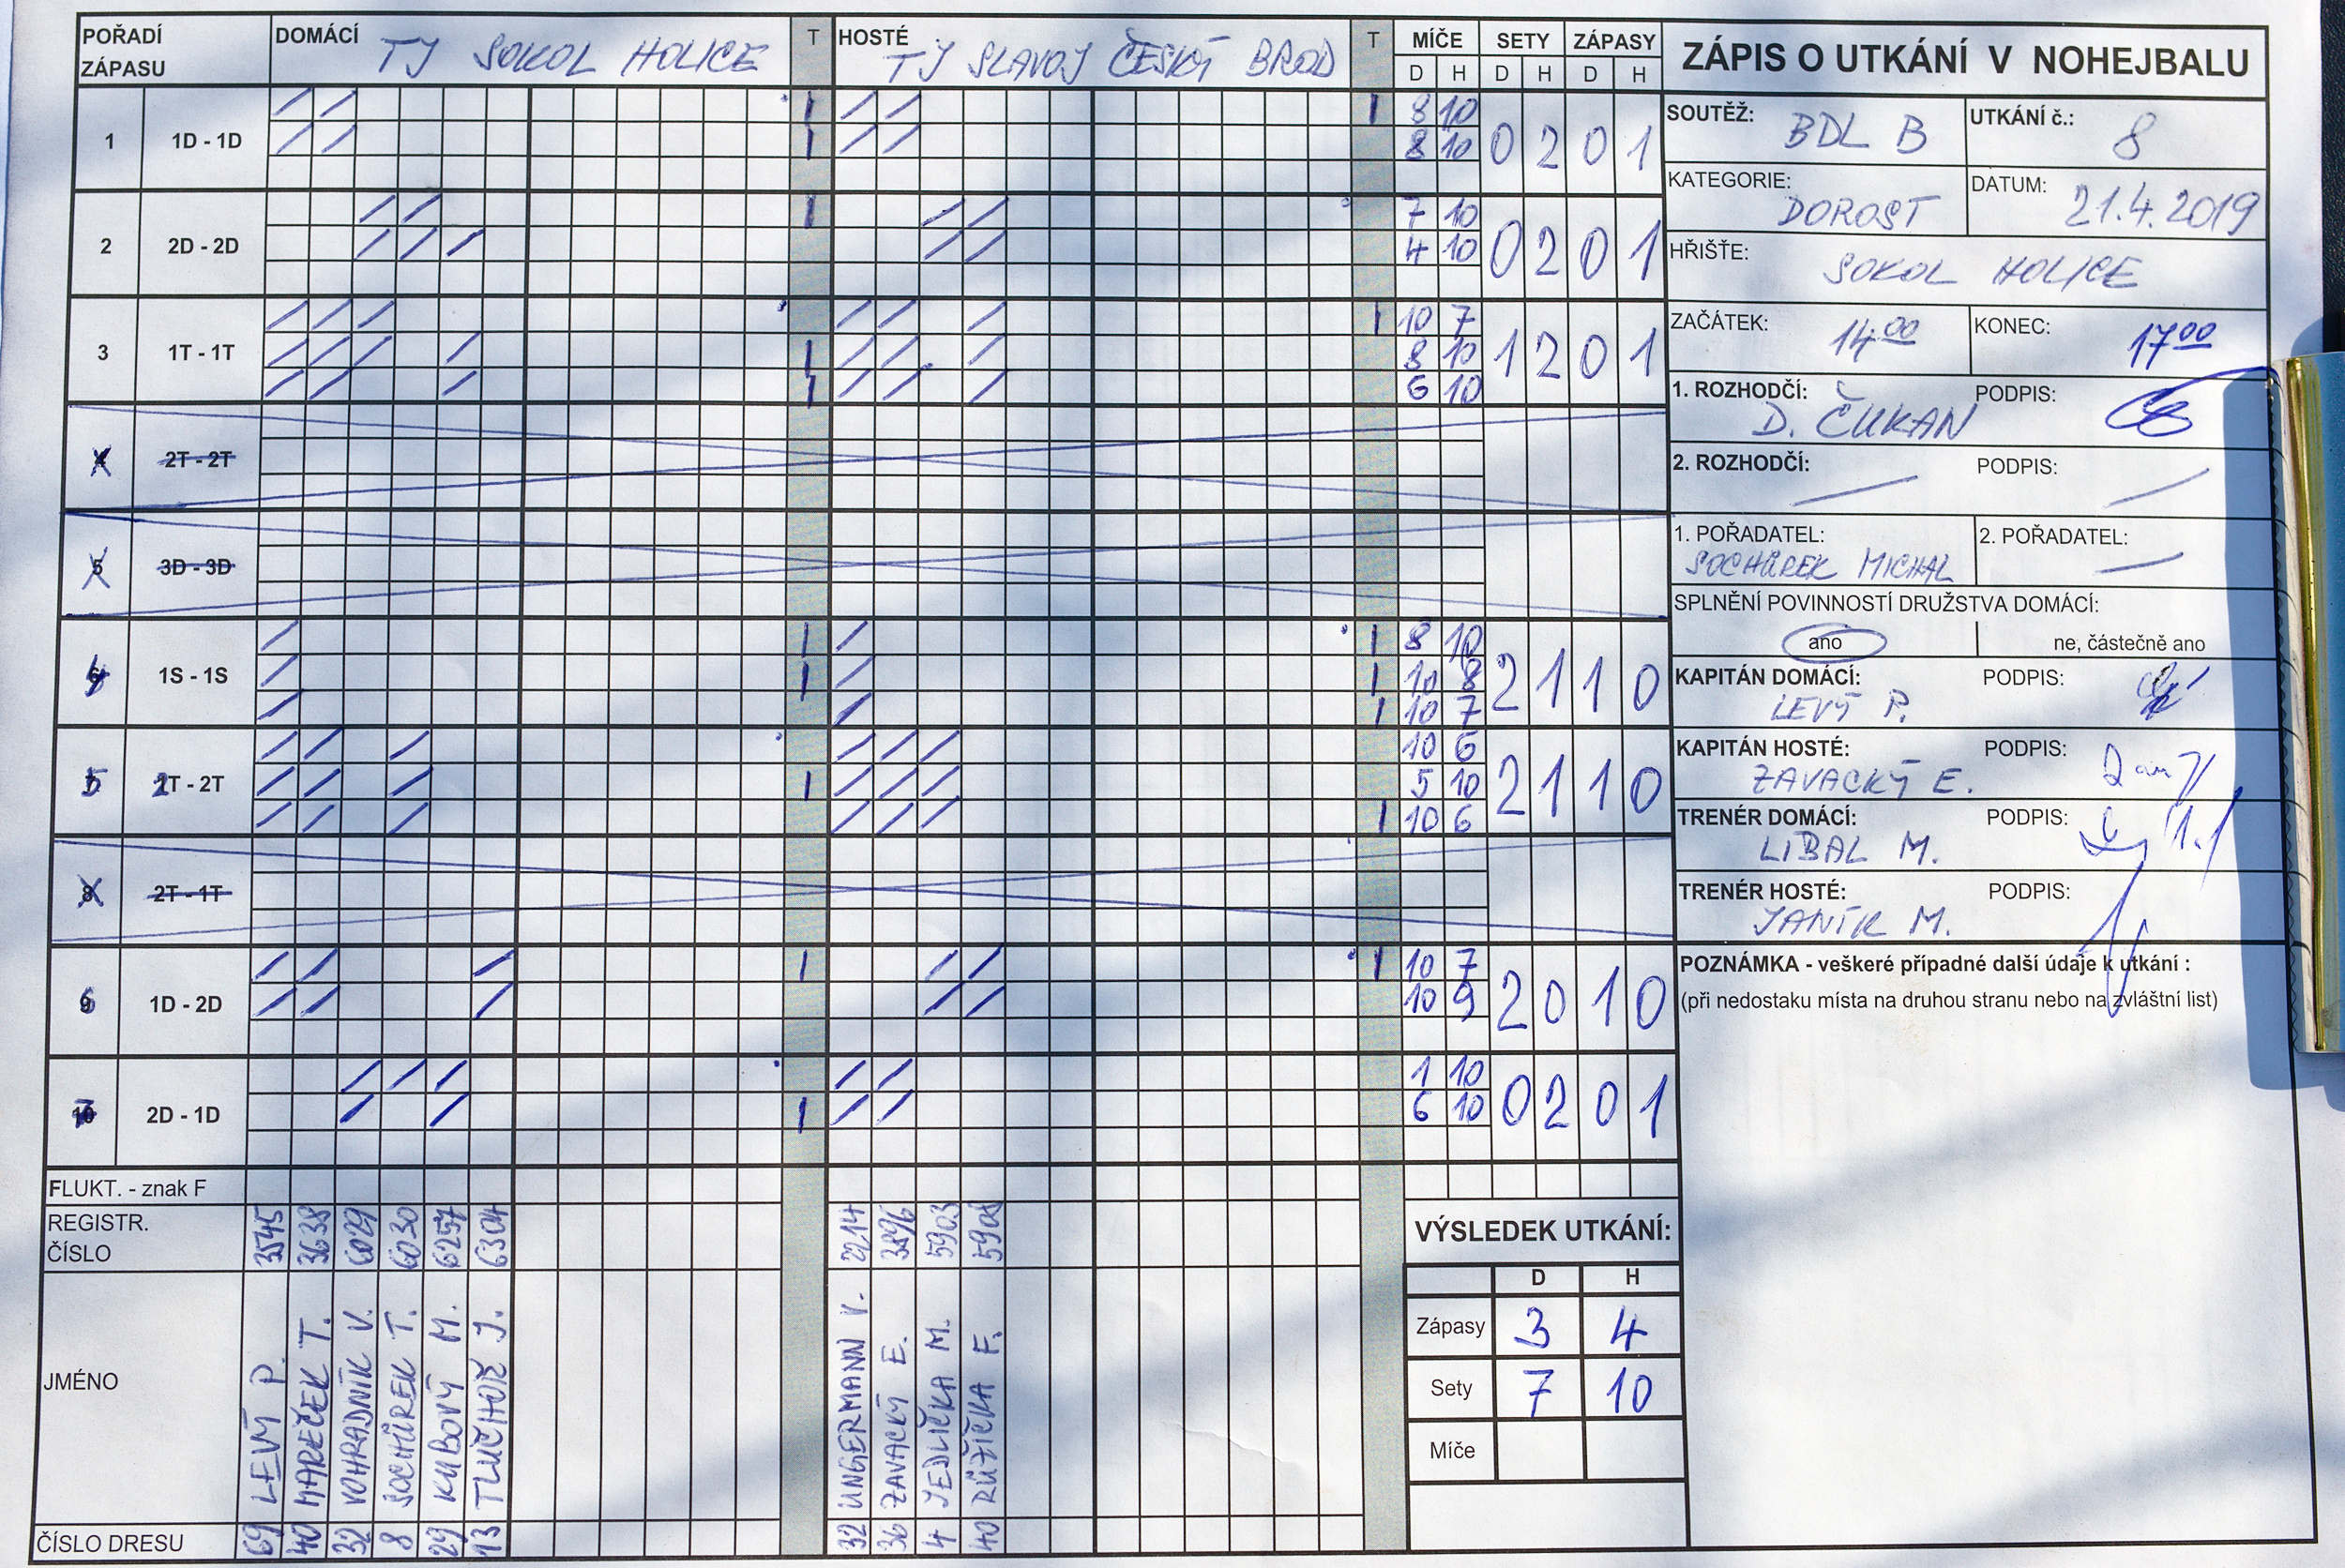 POŘADÍ ZÁPASU DOMÁCÍ TJ SOKOL HOLICE T HOSTÉ TJ SLAVOJ ČESKÝ BROD T MÍČE SETY ZÁPASY
D H D H D H
1 1D - 1D 8 10 0 2 0 1
8 10
2 2D - 2D 7 10 0 2 0 1
4 10
3 1T - 1T 10 7 1 2 0 1
8 10
6 10
4 2T - 2T
5 3D - 3D
4 1S - 1S 8 10 2 1 1 0
10 8
10 7
5 2T - 2T 10 6 2 1 1 0
5 10
10 6
8 2T - 1T
6 1D - 2D 10 7 2 0 1 0
10 9
7 2D - 1D 1 10 0 2 0 1
6 10
FLUKT. - znak F
REGISTR. ČÍSLO 3545 3638 6029 6030 6257 6304 2214 3896 5903 5908
JMÉNO LEVÝ P. MAREČEK T. VOHRADNÍK V. SOCHŮREK T. KUBOVÝ M. TLUČHOŘ J. UNGERMANN V. ZAVACKÝ E. JEDLIČKA M. RŮŽIČKA F.
ČÍSLO DRESU 69 40 32 8 29 13 32 36 4 40
VÝSLEDEK UTKÁNÍ:
D H
Zápasy 3 4
Sety 7 10
Míče
ZÁPIS O UTKÁNÍ V NOHEJBALU
SOUTĚŽ: BDL B UTKÁNÍ č.: 8
KATEGORIE: DOROST DATUM: 21.4.2019
HŘIŠTĚ: SOKOL HOLICE
ZAČÁTEK: 14 00 KONEC: 17 00
1. ROZHODČÍ: D. ČUKAN PODPIS:
2. ROZHODČÍ: PODPIS:
1. POŘADATEL: SOCHŮREK MICHAL 2. POŘADATEL:
SPLNĚNÍ POVINNOSTÍ DRUŽSTVA DOMÁCÍ:
ano ne, částečně ano
KAPITÁN DOMÁCÍ: LEVÝ P. PODPIS:
KAPITÁN HOSTÉ: ZAVACKÝ E. PODPIS:
TRENÉR DOMÁCÍ: LIBAL M. PODPIS:
TRENÉR HOSTÉ: JANÍK M. PODPIS:
POZNÁMKA - veškeré případné další údaje k utkání :
(při nedostaku místa na druhou stranu nebo na zvláštní list)